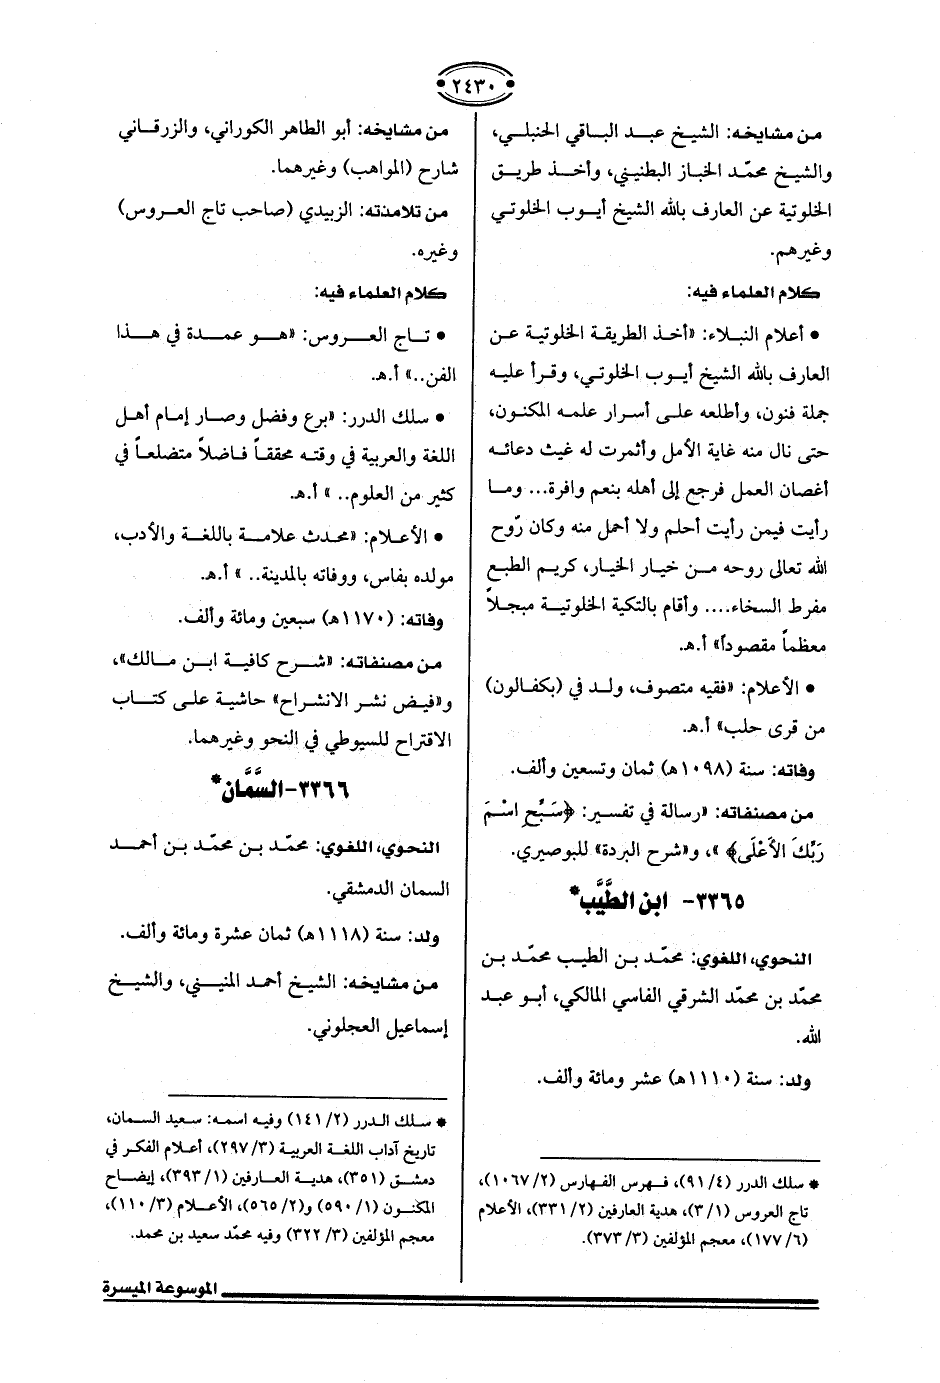 ٢٤٣٠
من مشايخه: الشيخ عبد الباقي الحنبلي،
والشيخ محمّد الخباز البطنيني، وأخذ طريق
الخلوتية عن العارف بالله الشيخ أيوب الخلوتي
وغيرهم.
كلام العلماء فيه:
• أعلام النبلاء: «أخذ الطريقة الخلوتية عن
العارف بالله الشيخ أيوب الخلوتي، وقرأ عليه
جملة فنون، وأطلعه على أسرار علمه المكنون،
حتى نال منه غاية الأمل وأثمرت له غيث دعائه
أغصان العمل فرجع إلى أهله بنعم وافرة... وما
رأيت فيمن رأيت أحلم ولا أحمل منه وكان رّوح
الله تعالى روحه من خيار الخيار، كريم الطبع
مفرط السخاء.... وأقام بالتكية الخلوتية مبجلاً
معظماً مقصوداً» أ.هـ.
• الأعلام: «فقيه متصوف، ولد في (بكفالون)
من قرى حلب» أ.هـ.
وفاته: سنة (١٠٩٨هـ) ثمان وتسعين وألف.
من مصنفاته: «رسالة في تفسير: ﴿سَبِّحِ اسْمَ
رَبِّكَ الأَعْلَى﴾ »، و«شرح البردة» للبوصيري.
٣٣٦٥- ابن الطَّيِّب*
النحوي، اللغوي: محمّد بن الطيب محمّد بن
محمّد بن محمّد الشرقي الفاسي المالكي، أبو عبد
الله.
ولد: سنة (١١١٠هـ) عشر ومائة وألف.
* سلك الدرر (٤/ ٩١)، فهرس الفهارس (٢/ ١٠٦٧)،
تاج العروس (١/ ٣)، هدية العارفين (٢/ ٣٣١)، الأعلام
(٦/ ١٧٧)، معجم المؤلفين (٣/ ٣٧٣).
من مشايخه: أبو الطاهر الكوراني، والزرقاني
شارح (المواهب) وغيرهما.
من تلامذته: الزبيدي (صاحب تاج العروس)
وغيره.
كلام العلماء فيه:
• تاج العروس: «هو عمدة في هذا
الفن..» أ.هـ.
• سلك الدرر: «برع وفضل وصار إمام أهل
اللغة والعربية في وقته محققاً فاضلاً متضلعاً في
كثير من العلوم.. » أ.هـ.
• الأعلام: «محدث علامة باللغة والأدب،
مولده بفاس، ووفاته بالمدينة.. » أ.هـ.
وفاته: (١١٧٠هـ) سبعين ومائة وألف.
من مصنفاته: «شرح كافية ابن مالك»،
و«فيض نشر الانشراح» حاشية على كتاب
الاقتراح للسيوطي في النحو وغيرهما.
٣٣٦٦- السَّمَّان*
النحوي، اللغوي: محمّد بن محمّد بن أحمد
السمان الدمشقي.
ولد: سنة (١١١٨هـ) ثمان عشرة ومائة وألف.
من مشايخه: الشيخ أحمد المنيني، والشيخ
إسماعيل العجلوني.
* سلك الدرر (٢/ ١٤١) وفيه اسمه: سعيد السمان،
تاريخ آداب اللغة العربية (٣/ ٢٩٧)، أعلام الفكر في
دمشق (٣٥١)، هدية العارفين (١/ ٣٩٣)، إيضاح
المكنون (١/ ٥٩٠) و(٢/ ٥٦٥)، الأعلام (٣/ ١١٠)،
معجم المؤلفين (٣/ ٣٢٢) وفيه محمّد سعيد بن محمد.
الموسوعة الميسرة